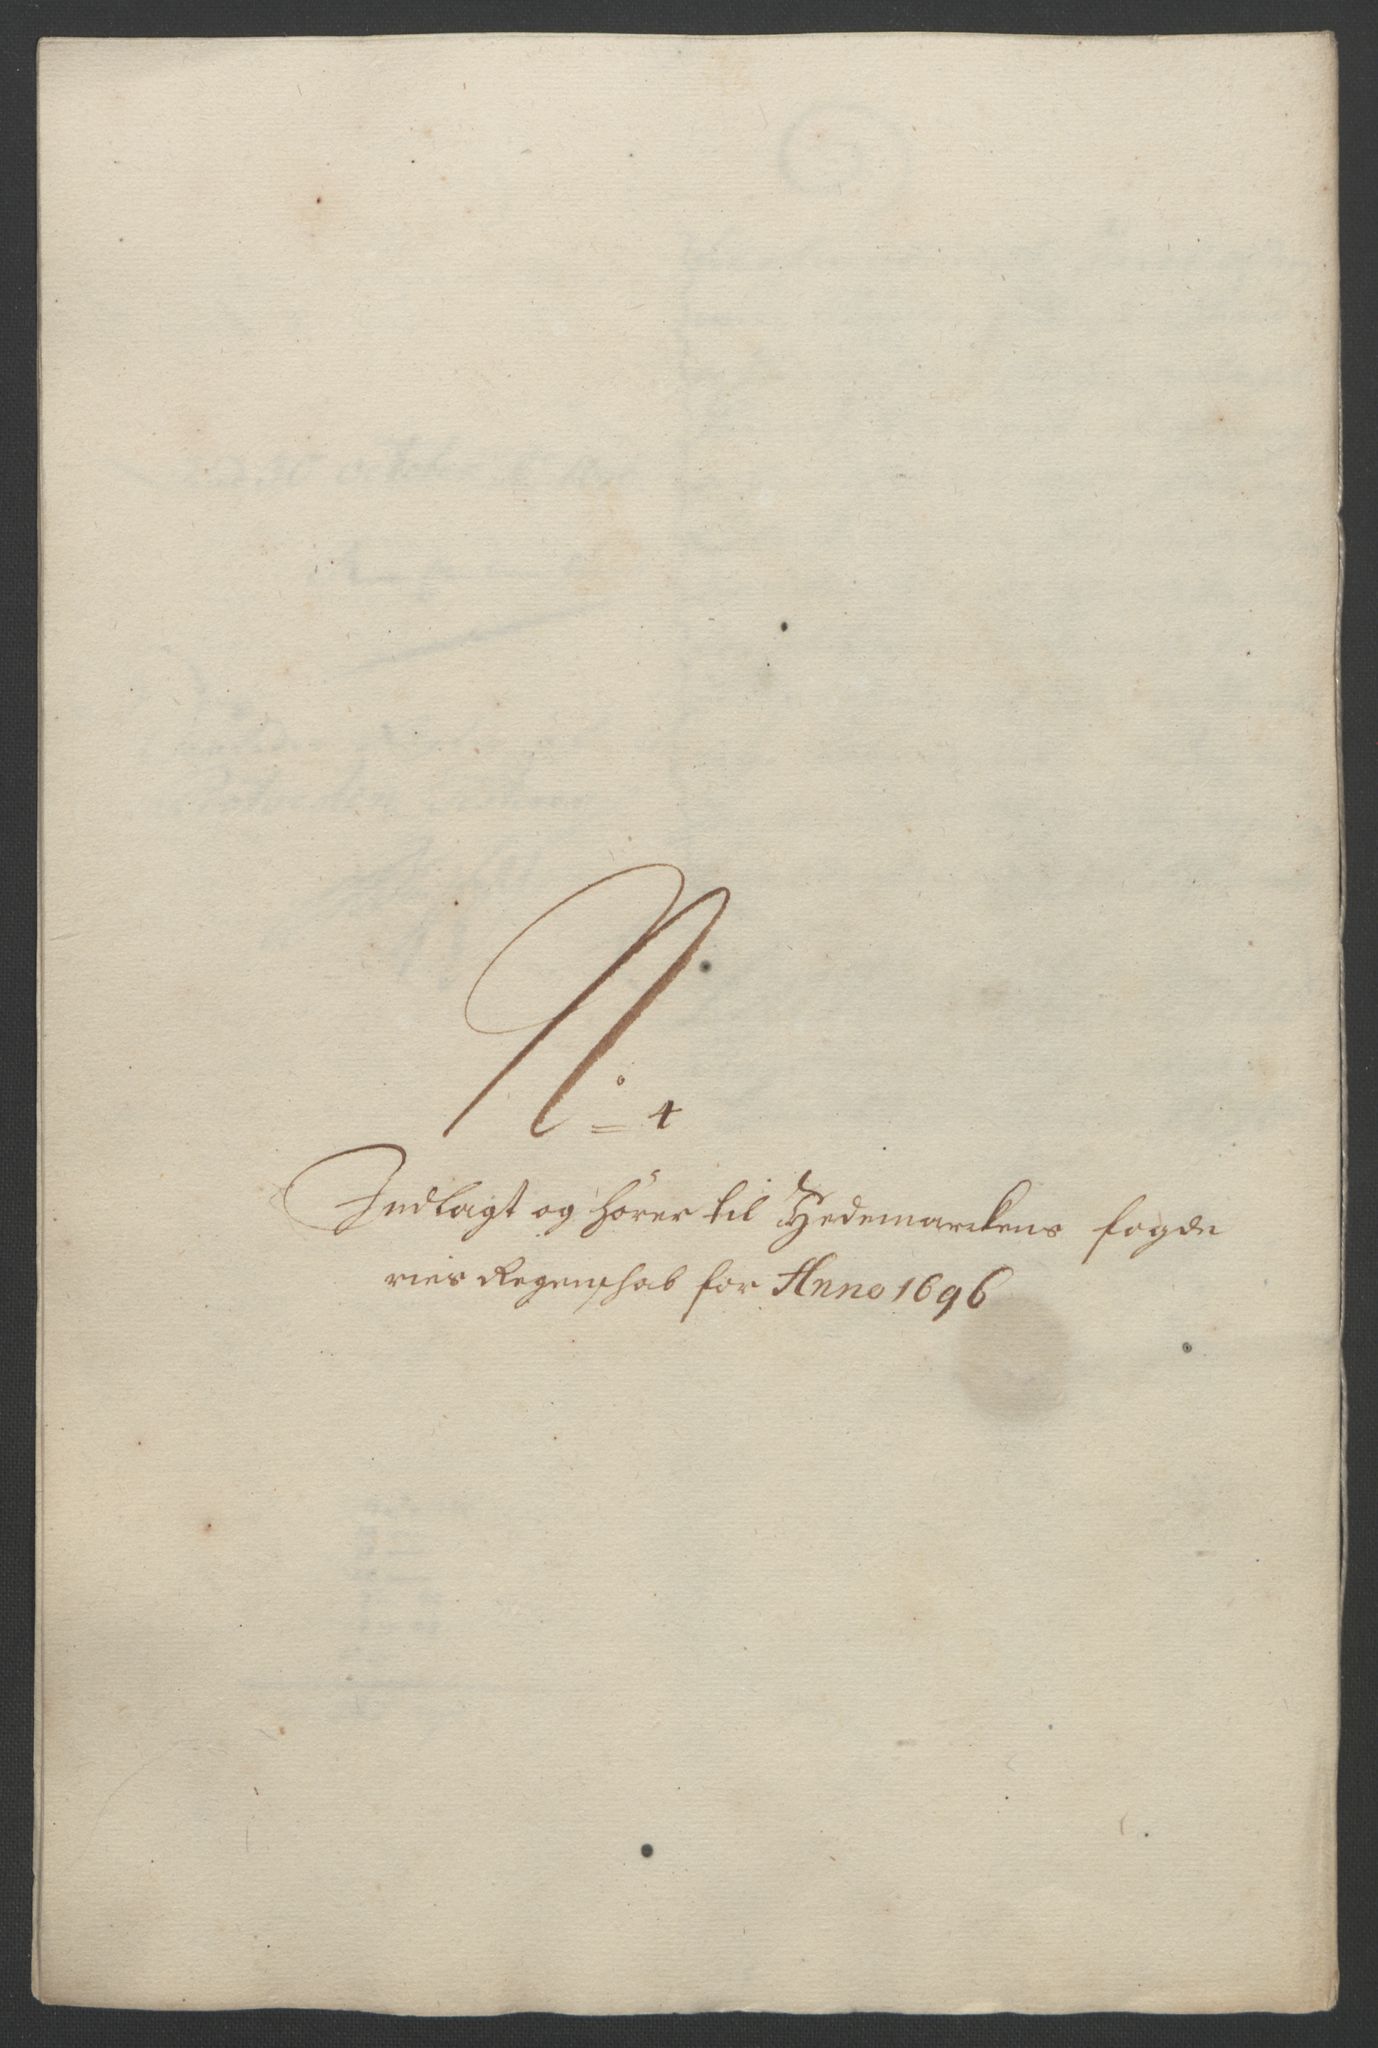 N:o 4
Indlagt og hörer til Hedemarckens fogde
ries Regenschab for Anno 1696